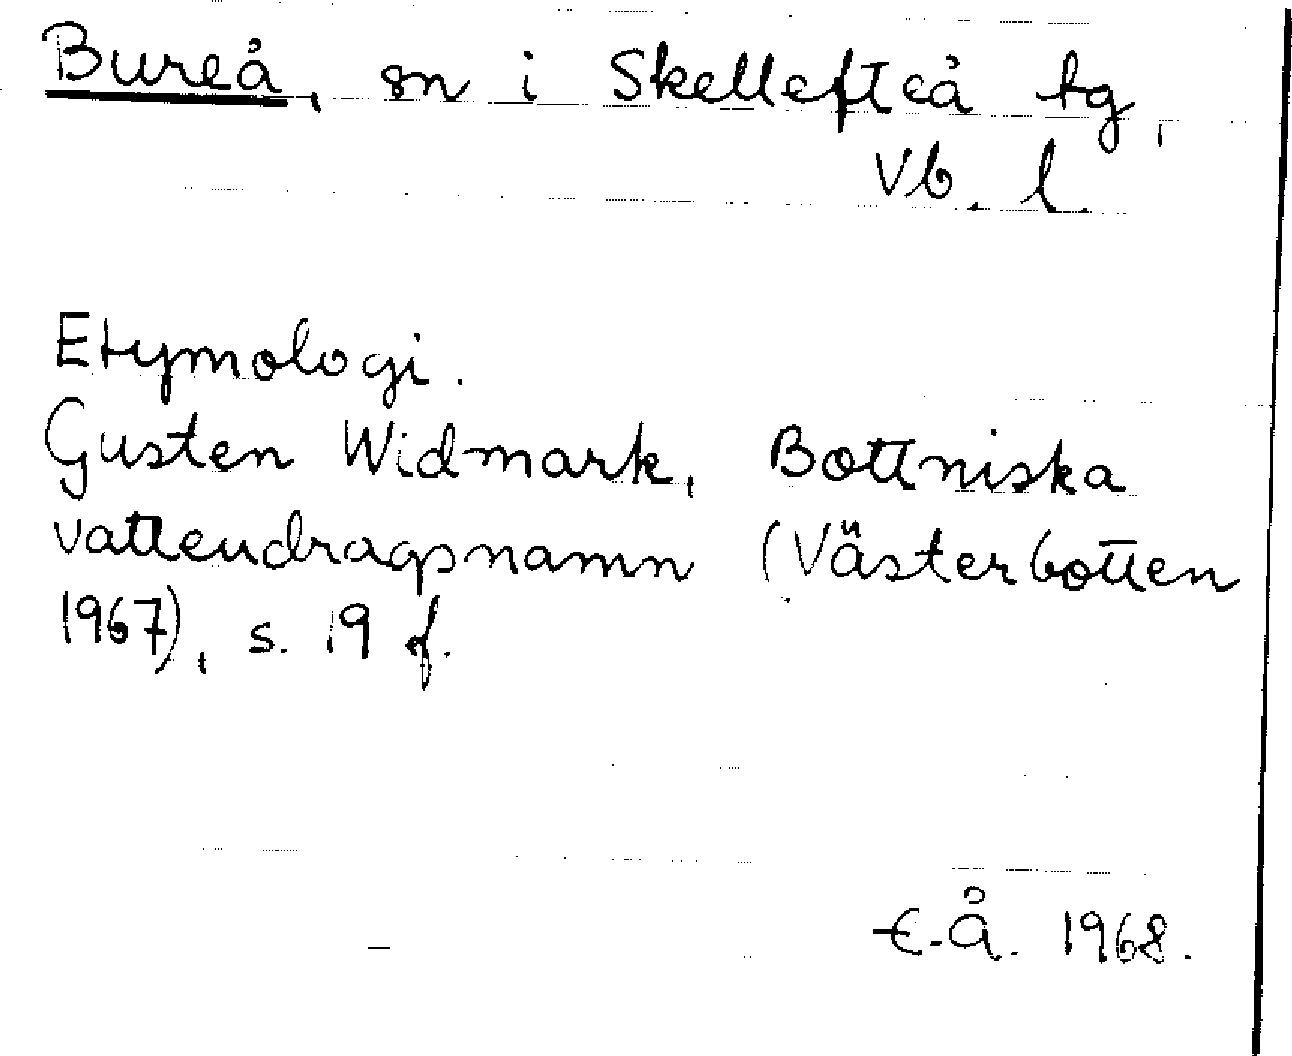 Bureå, sn i Skellefteå tg,
Vb. l.
Etymologi.
Gusten Widmark, Bottniska
vattendragsnamn (Västerbotten
1967), s. 19 f.
E.Å. 1968.